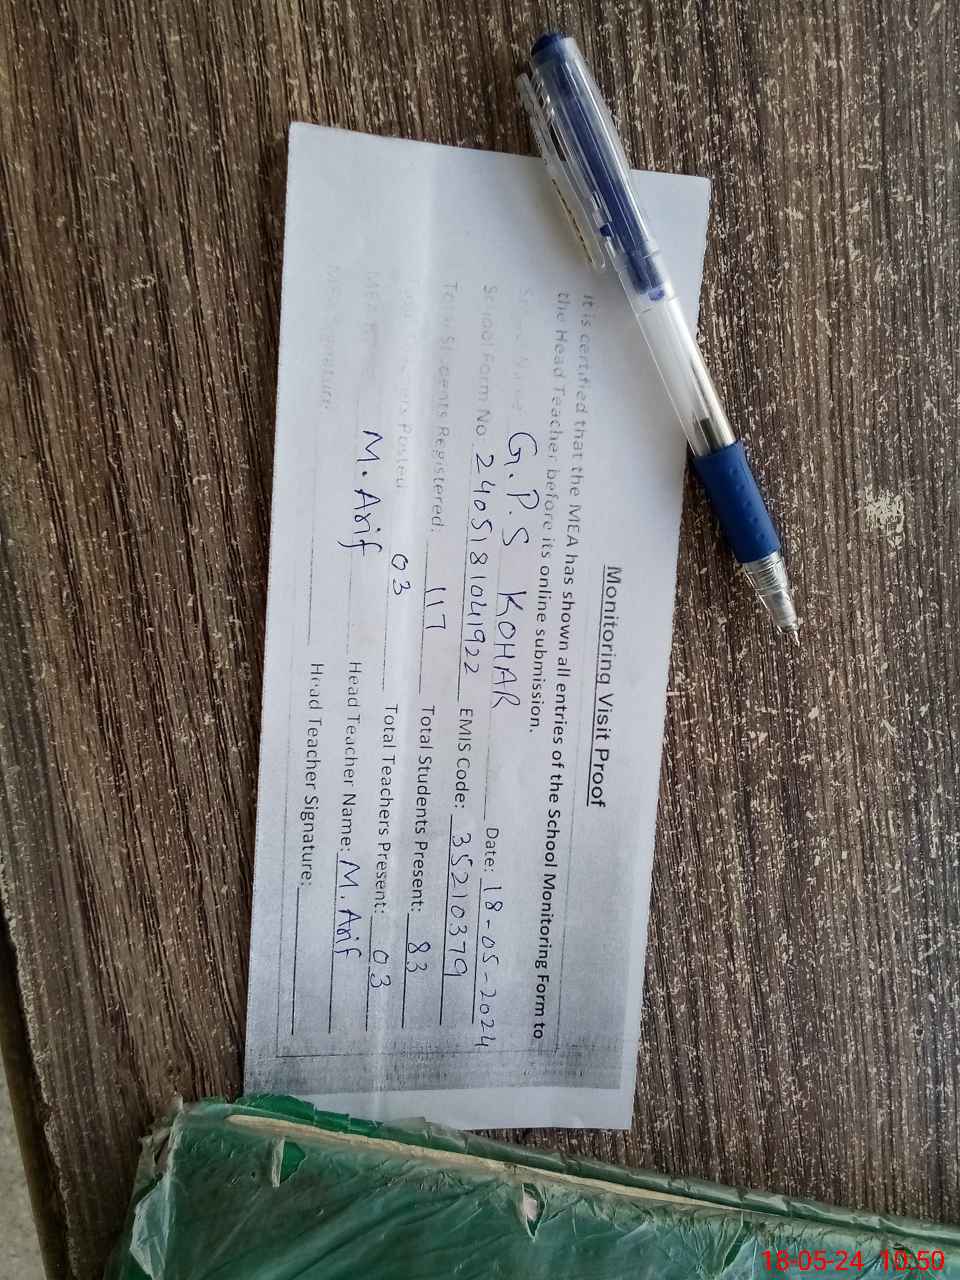 Monitoring Visit Proof
It is certified that the MEA has shown all entries of the School Monitoring Form to
the Head Teacher before its online submission.
School Name: G.P.S KOHAR Date: 18-05-2024
School Form No: 2405181041922 EMIS Code: 35210379
Total Students Registered: 117 Total Students Present: 83
Total Teachers Posted 03 Total Teachers Present: 03
MEA Name M. Arif Head Teacher Name: M. Arif
MEA Signature: Head Teacher Signature:
18-05-24 10:50